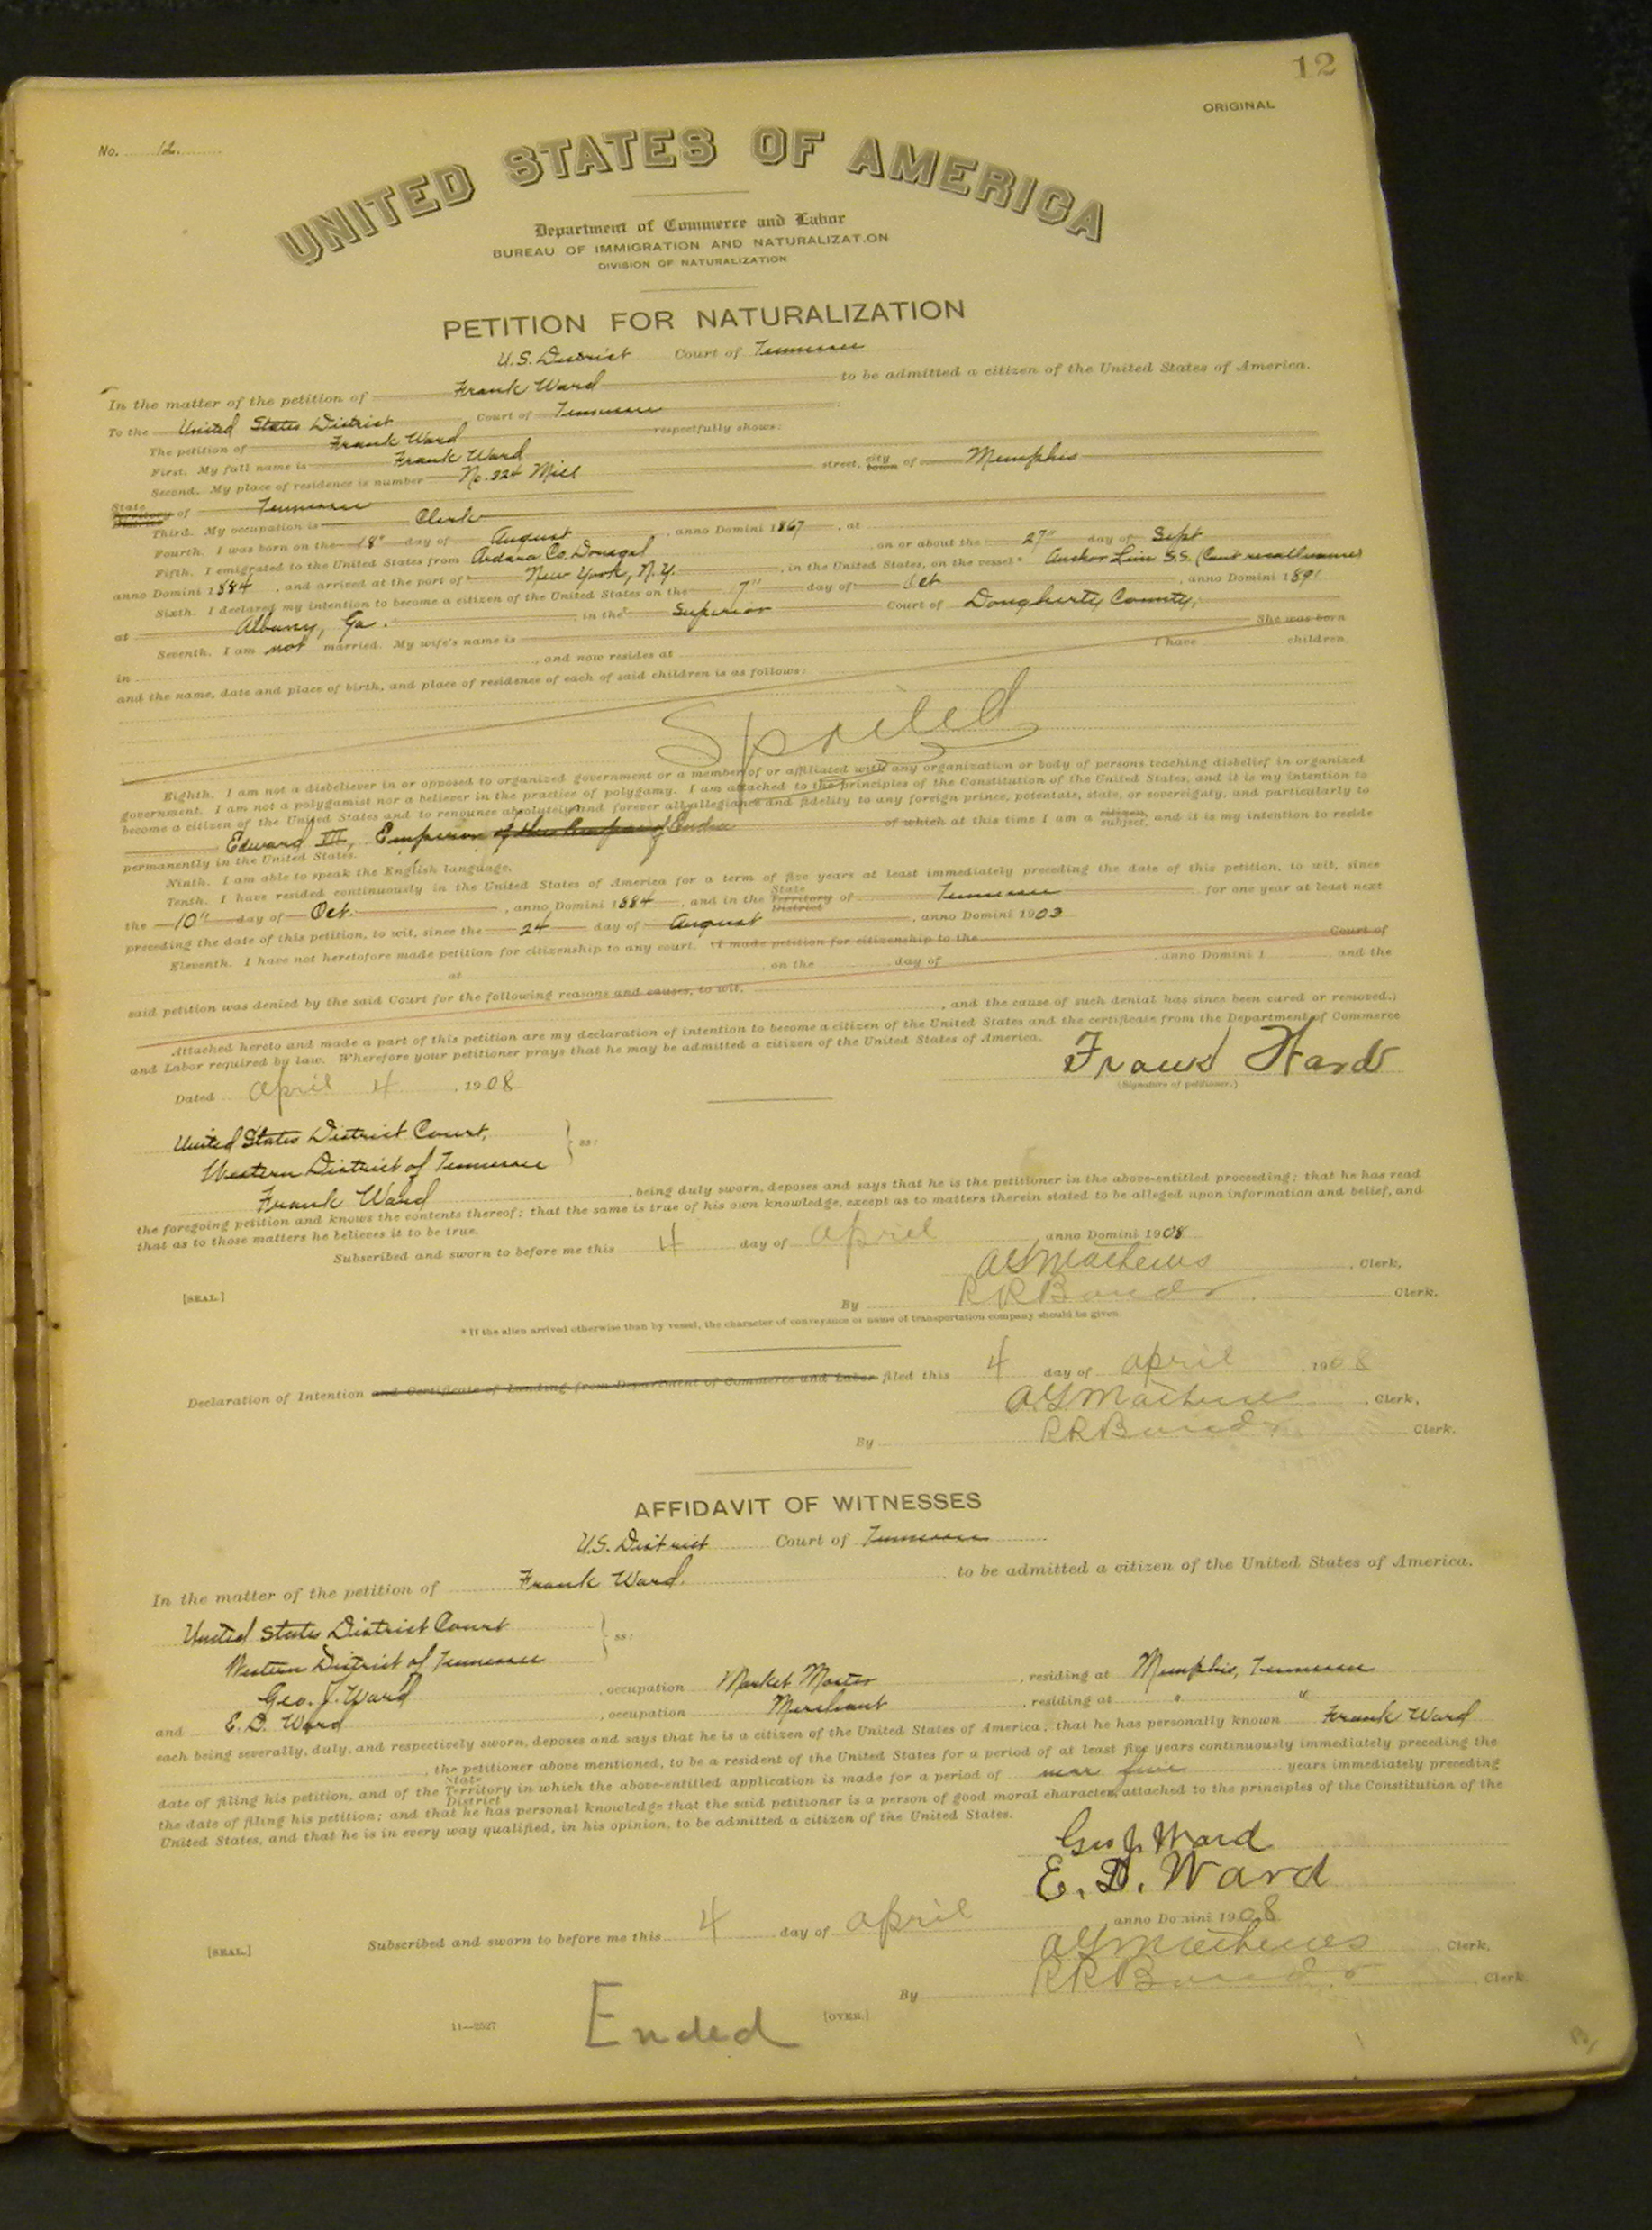 12
ORIGINAL
No. 12.
UNITED STATES OF AMERICA
Department of Commerce and Labor
BUREAU OF IMMIGRATION AND NATURALIZATION
DIVISION OF NATURALIZATION
PETITION FOR NATURALIZATION
U.S. District Court of Tennessee
In the matter of the petition of Frank Ward to be admitted a citizen of the United States of America.
To the United States District Court of Tennessee
The petition of Frank Ward respectfully shows:
First. My full name is Frank Ward
Second. My place of residence is number No. 224 Mill street, city town of Memphis
State Territory District of Tennessee
Third. My occupation is Clerk
Fourth. I was born on the 18" day of August, anno Domini 1867, at
Fifth. I emigrated to the United States from Ardara Co. Donegal, on or about the 27" day of Sept
anno Domini 1884, and arrived at the port of New York, N.Y., in the United States, on the vessel* Anchor Line S.S. (Can't recall name)
Sixth. I declared my intention to become a citizen of the United States on the 7" day of Oct, anno Domini 189
at Albany, Ga. in the Superior Court of Dougherty County,
Seventh. I am not married. My wife's name is She was born
in , and now resides at I have children,
and the name, date and place of birth, and place of residence of each of said children is as follows:
Spoiled
Eighth. I am not a disbeliever in or opposed to organized government or a member of or affiliated with any organization or body of persons teaching disbelief in organized
government. I am not a polygamist nor a believer in the practice of polygamy. I am attached to the principles of the Constitution of the United States, and it is my intention to
become a citizen of the United States and to renounce absolutely and forever all allegiance and fidelity to any foreign prince, potentate, state, or sovereignty, and particularly to
Edward VII, Emperor of the of India of which at this time I am a citizen subject, and it is my intention to reside
permanently in the United States.
Ninth. I am able to speak the English language.
Tenth. I have resided continuously in the United States of America for a term of five years at least immediately preceding the date of this petition, to wit, since
the 10" day of Oct., anno Domini 1884, and in the State Territory District of Tennessee for one year at least next
preceding the date of this petition, to wit, since the 24 day of August, anno Domini 1903
Eleventh. I have not heretofore made petition for citizenship to any court. (I made petition for citizenship to the Court of
at , on the day of , anno Domini 1 , and the
said petition was denied by the said Court for the following reasons and causes, to wit,
, and the cause of such denial has since been cured or removed.)
Attached hereto and made a part of this petition are my declaration of intention to become a citizen of the United States and the certificate from the Department of Commerce
and Labor required by law. Wherefore your petitioner prays that he may be admitted a citizen of the United States of America.
Frank Ward
(Signature of petitioner.)
Dated April 4, 1908
United States District Court,
Western District of Tennessee
ss:
Frank Ward, being duly sworn, deposes and says that he is the petitioner in the above-entitled proceeding; that he has read
the foregoing petition and knows the contents thereof; that the same is true of his own knowledge, except as to matters therein stated to be alleged upon information and belief, and
that as to those matters he believes it to be true.
Subscribed and sworn to before me this 4 day of April anno Domini 1908
Mathews, Clerk,
[SEAL.]
By R R Clerk.
*If the alien arrived otherwise than by vessel, the character of conveyance or name of transportation company should be given.
Declaration of Intention and Certificate of Landing from Department of Commerce and Labor filed this 4 day of April, 1908
Mathews, Clerk,
By R R Clerk.
AFFIDAVIT OF WITNESSES
U.S. District Court of Tennessee
In the matter of the petition of Frank Ward. to be admitted a citizen of the United States of America.
United States District Court
Western District of Tennessee
ss:
Geo. J. Ward, occupation Market Master, residing at Memphis, Tennessee
and E. D. Ward, occupation Merchant, residing at " "
each being severally, duly, and respectively sworn, deposes and says that he is a citizen of the United States of America; that he has personally known Frank Ward
, the petitioner above mentioned, to be a resident of the United States for a period of at least five years continuously immediately preceding the
date of filing his petition, and of the State Territory District in which the above-entitled application is made for a period of near five years immediately preceding
the date of filing his petition; and that he has personal knowledge that the said petitioner is a person of good moral character, attached to the principles of the Constitution of the
United States, and that he is in every way qualified, in his opinion, to be admitted a citizen of the United States.
Geo J Ward
E. D. Ward
Subscribed and sworn to before me this 4 day of April anno Domini 1908
[SEAL.]
Mathews, Clerk,
By R R Clerk.
11—2527
Ended
[OVER.]